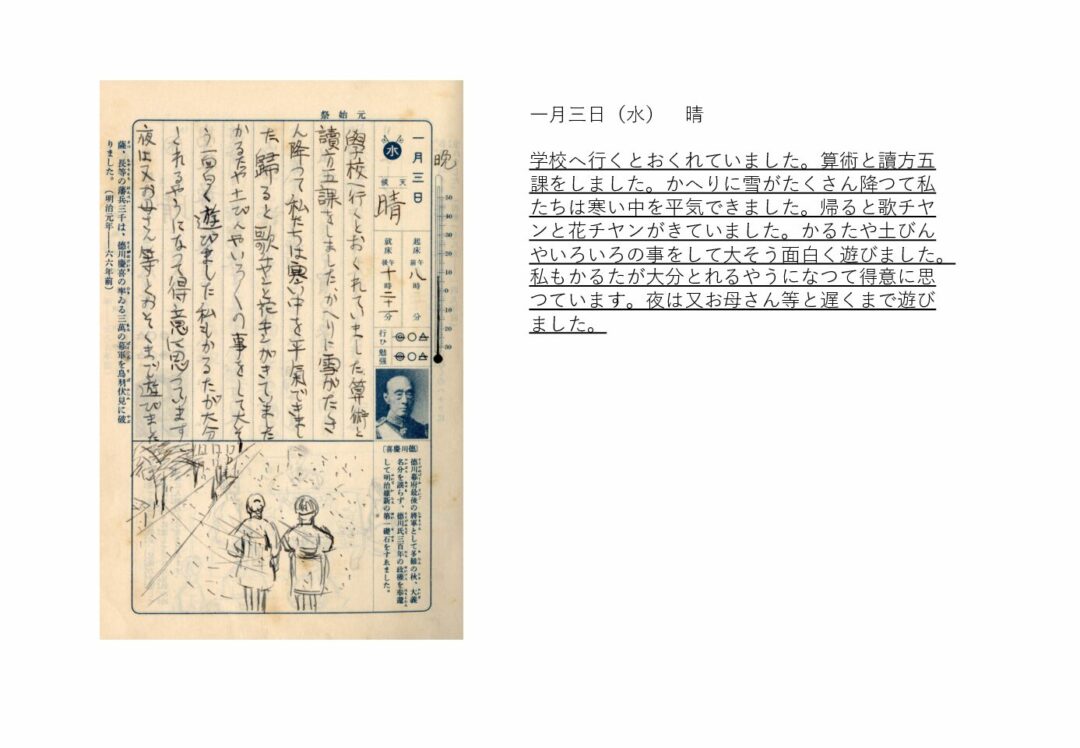 元始祭
一月三日
水
天候
晴
晩
起床 午前 八時 分
就床 午後 十時二十分
行ひ
勉强
50
40
30
20
10
0
10
20
30
學校へ行くとおくれていました。算術と
讀方五課をしました。かへりに雪がたくさ
ん降つて私たちは寒い中を平氣できまし
た。歸ると歌チヤンと花チヤンがきていました
かるたや土びんやいろいろの事をして大そ
う面白く遊びました私もかるたが大分
とれるやうになつて得意に思つています
夜は又お母さん等とおそくまで遊びました
薩、長等の藩兵三千は、德川慶喜の率ゐる三萬の幕軍を鳥羽伏見に破
りました。(明治元年——六六年前)
〔德川慶喜〕
德川幕府最後の將軍として多難の秋、大義
名分を誤らず、德川氏三百年の政權を奉還
して明治維新の第一礎石をすゑました。
一月三日（水）　晴
学校へ行くとおくれていました。算術と讀方五
課をしました。かへりに雪がたくさん降つて私
たちは寒い中を平気できました。帰ると歌チヤ
ンと花チヤンがきていました。かるたや土びん
やいろいろの事をして大そう面白く遊びました。
私もかるたが大分とれるやうになつて得意に思
つています。夜は又お母さん等と遅くまで遊び
ました。